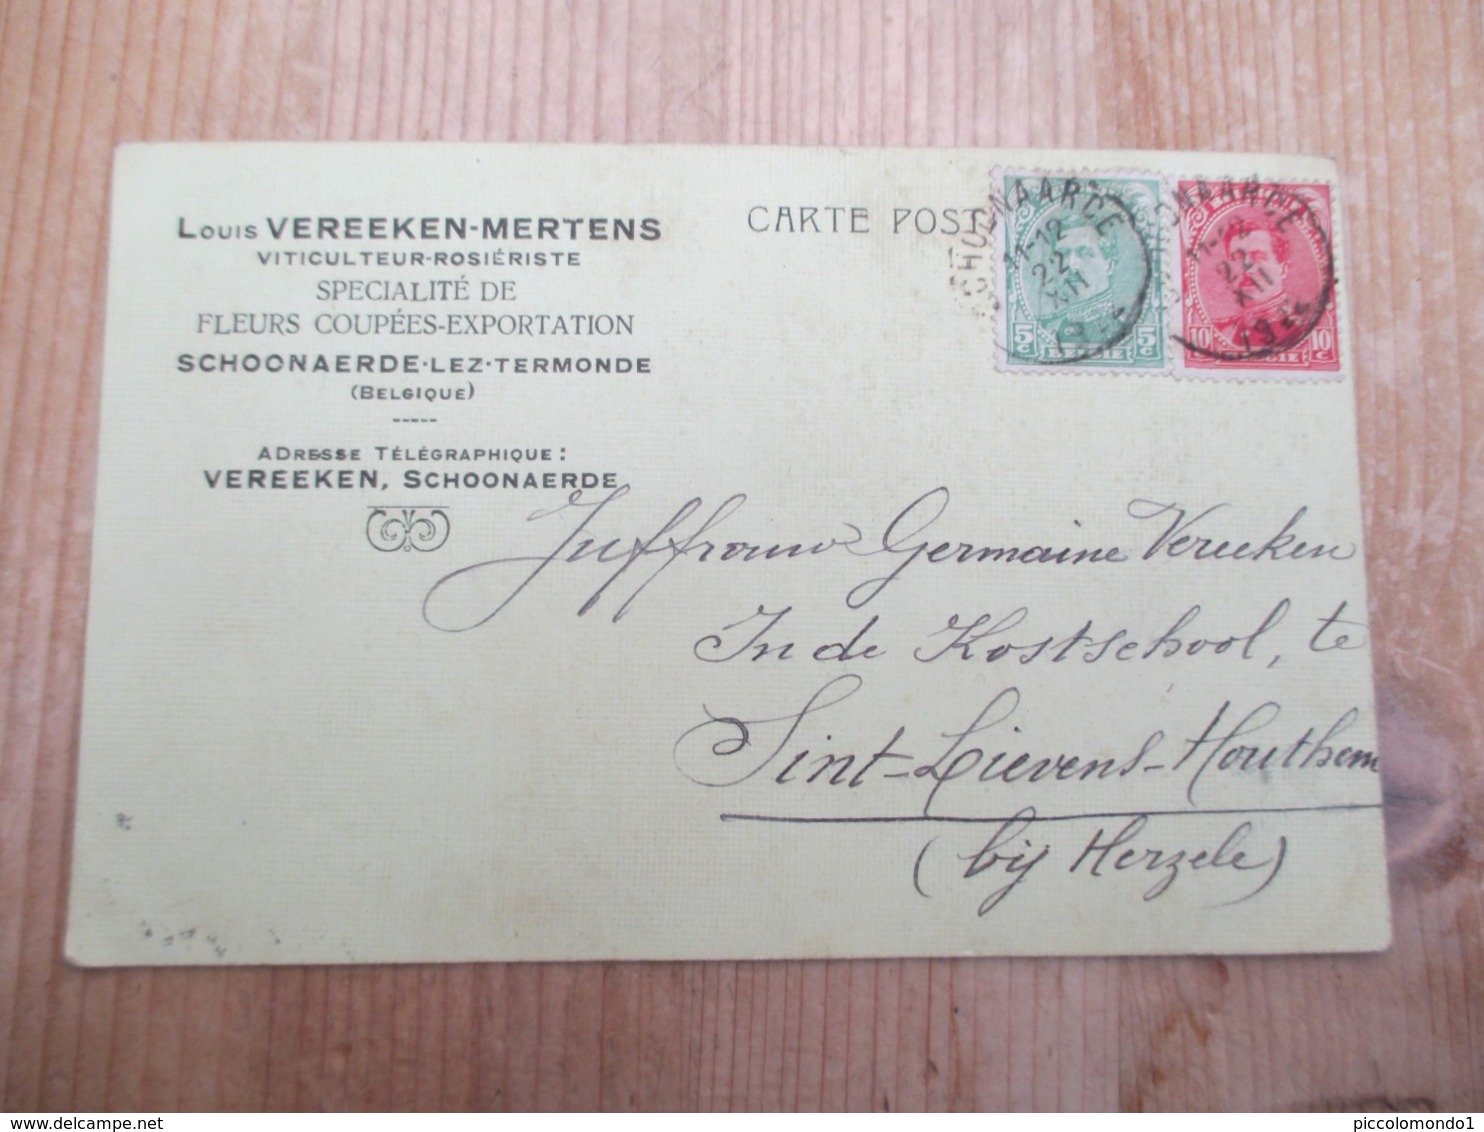 Louis VEREEKEN-MERTENS
VITICULTEUR-ROSIÉRISTE
SPECIALITÉ DE
FLEURS COUPÉES-EXPORTATION
SCHOONAERDE-LEZ-TERMONDE
(BELGIQUE)
ADRESSE TÉLÉGRAPHIQUE:
VEREEKEN, SCHOONAERDE
CARTE POST
SCHOONAARDE
11-12
22
XII
5c 5c
SCHOONAARDE
11-12
22
XII
10c 10c
Juffrouw Germaine Vereeken
In de Kostschool, te
Sint-Lievens-Houthem
(bij Herzele)
piccolomondo1